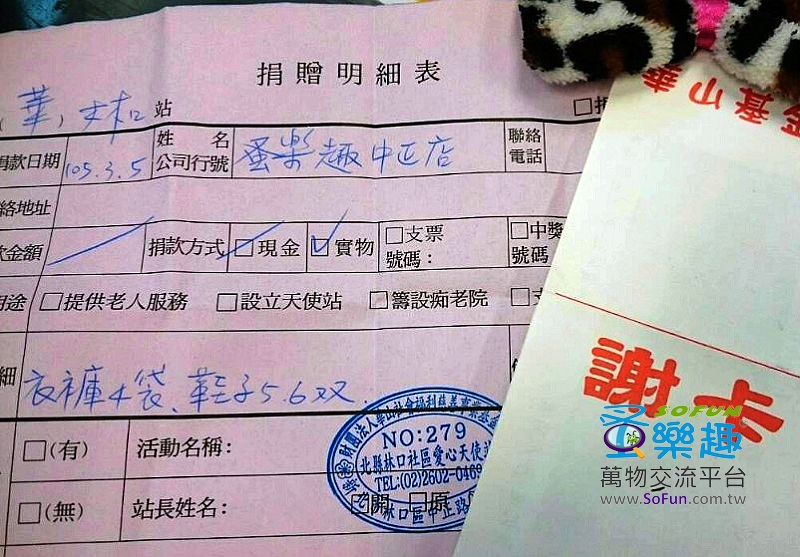 捐贈明細表
(華)
站
捐款日期 105.3.5 姓名 公司行號 蚤樂趣中正店 聯絡電話
聯絡地址
款金額 捐款方式 □現金 □實物 □支票號碼： □中獎號碼
用途 □提供老人服務 □設立天使站 □籌設痴老院
細 衣褲4袋、鞋子5.6双.
□(有) 活動名稱：
□(無) 站長姓名：
財團法人華山社會福利慈善事業
NO:279
北縣林口社區愛心天使
TEL:(02)2602-0469
林口區中正路
金基山華
謝卡
SOFUN
蚤樂趣
萬物交流平台
www.SoFun.com.tw